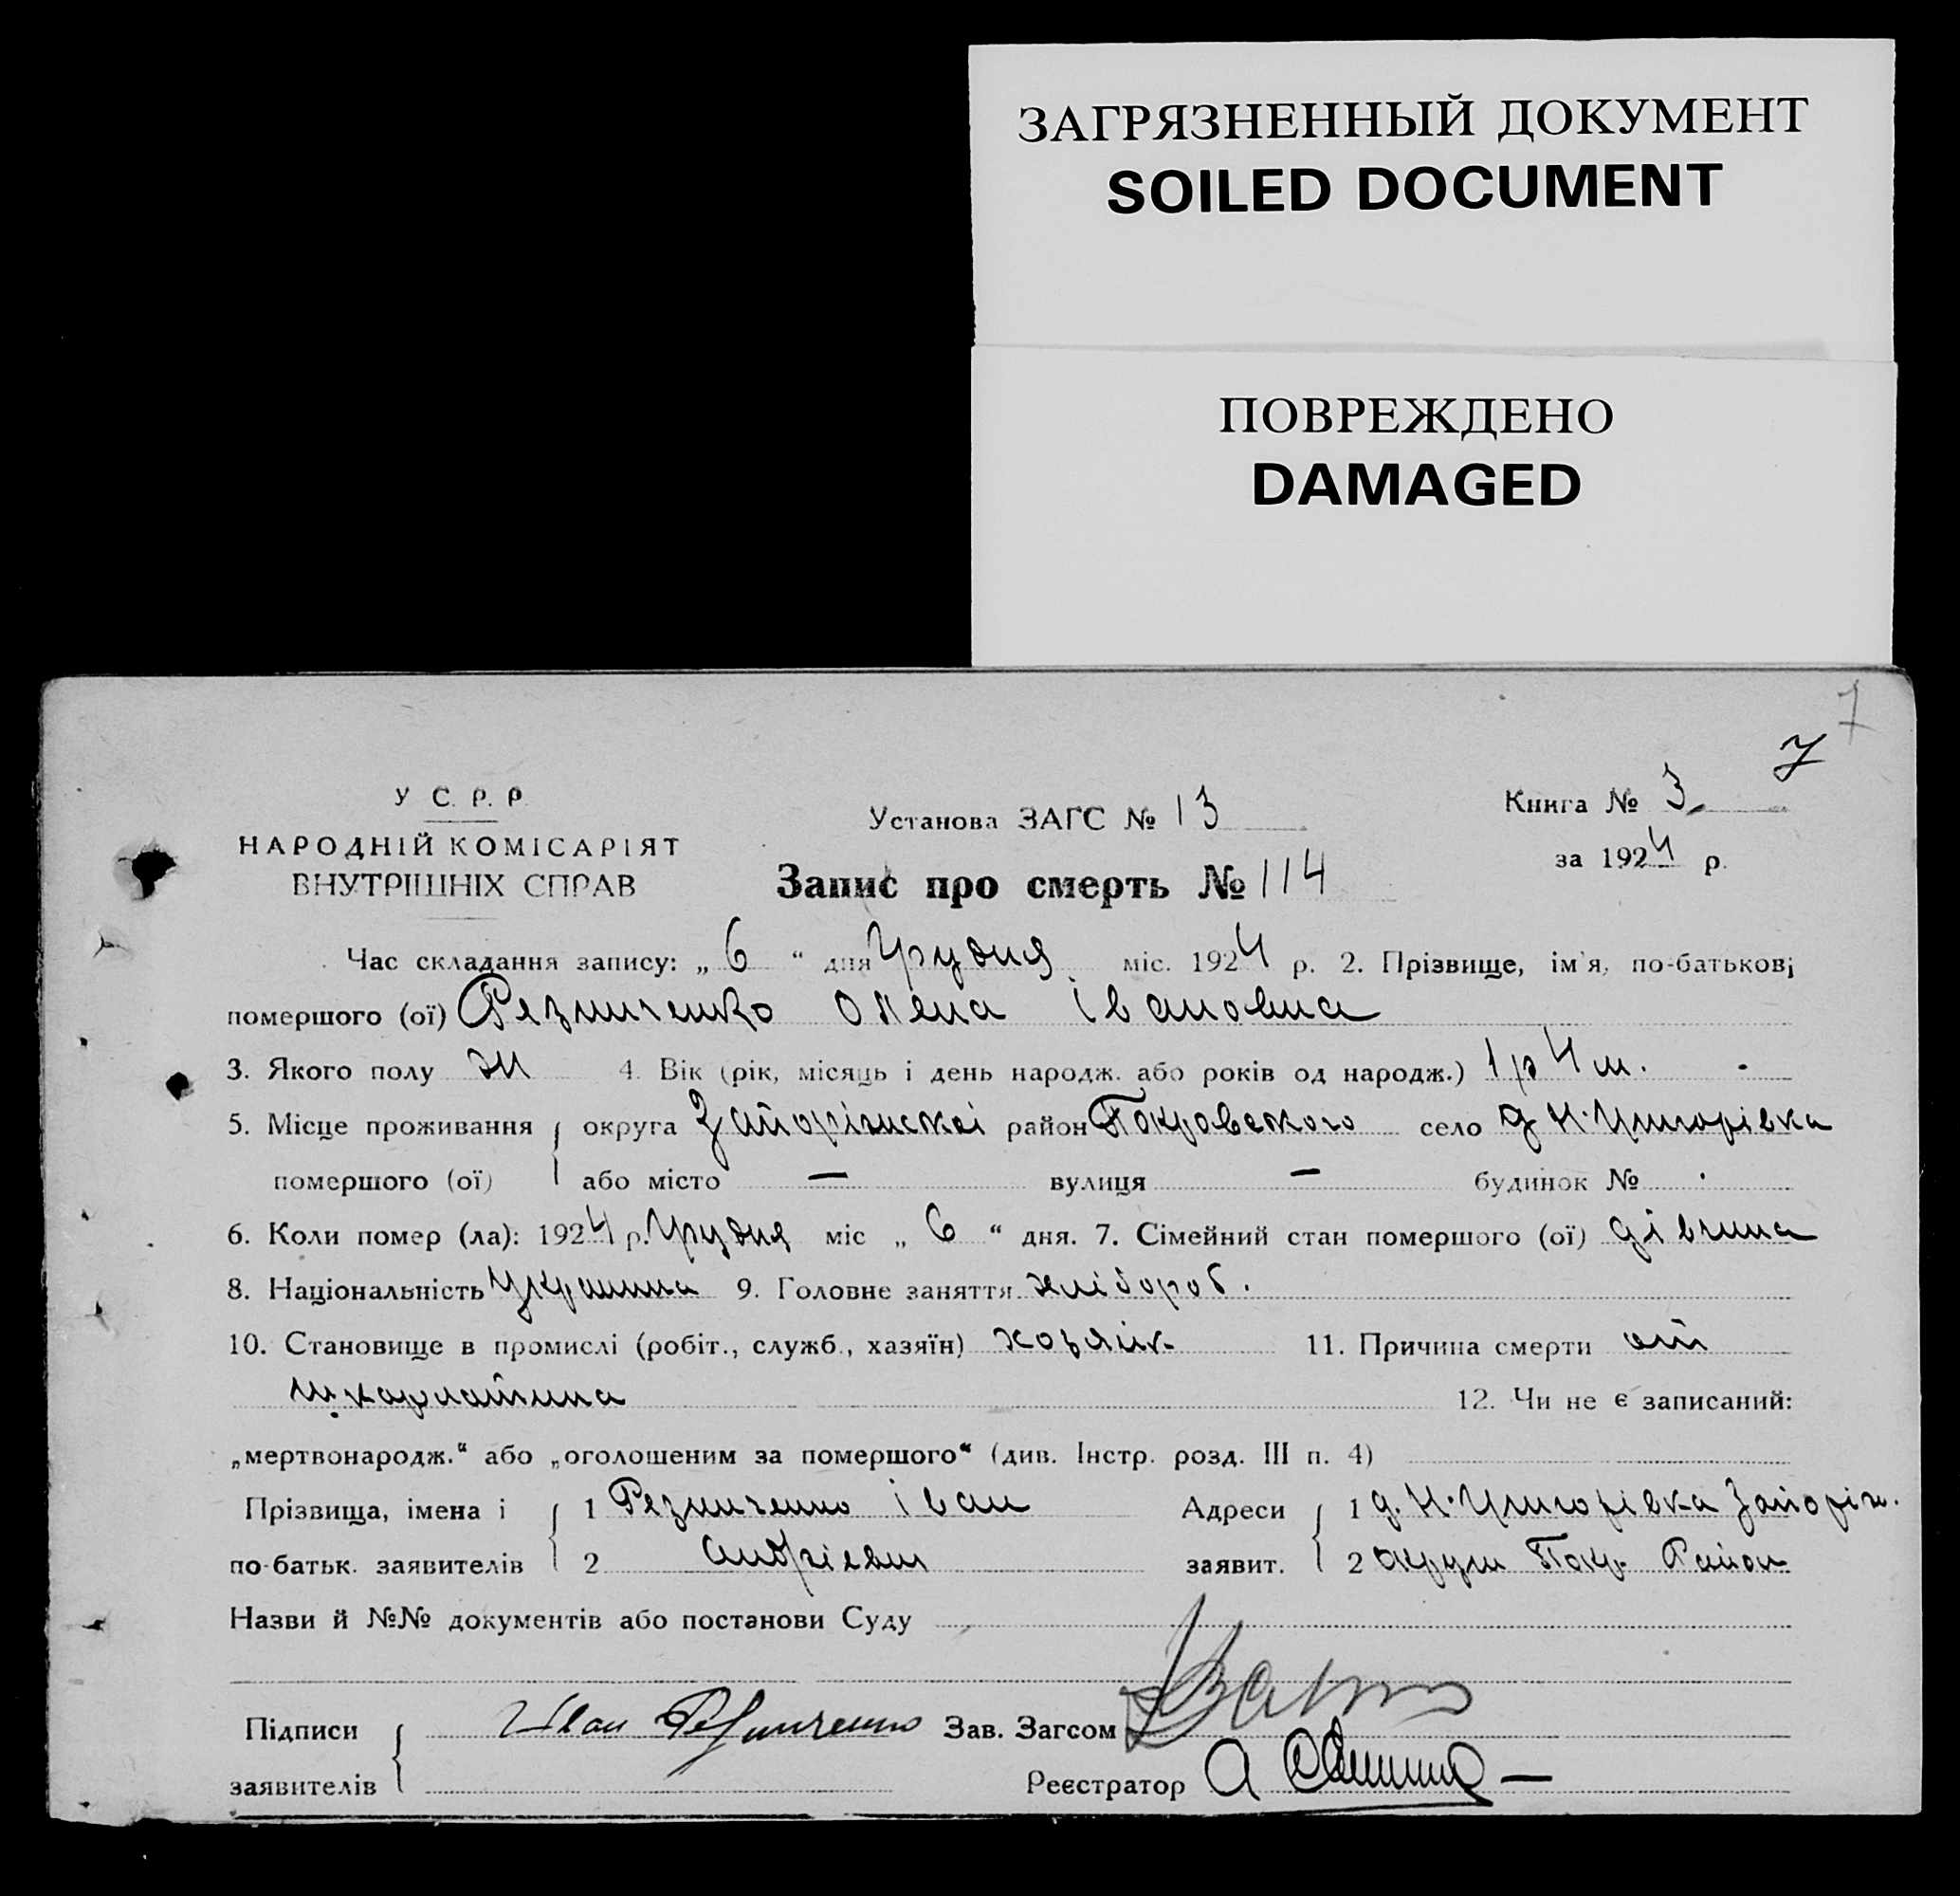 ЗАГРЯЗНЕННЫЙ ДОКУМЕНТ
SOILED DOCUMENT
ПОВРЕЖДЕНО
DAMAGED
7
7
У С. Р. Р.
НАРОДНІЙ КОМІСАРІЯТ
ВНУТРІШНІХ СПРАВ
Установа ЗАГС № 13
Запис про смерть № 114
Книга № 3
за 1924 р.
Час складання запису: „ 6 “ дня Грудня міс. 1924 р. 2. Прізвище, ім'я, по-батькові
помершого (ої) Резниченко Олена Івановна
3. Якого полу ж 4. Вік (рік, місяць і день народж. або років од народж.) 1 р 4 м.
5. Місце проживання округа Запоріжскоі район Покровского село д Н. Григорівка
помершого (ої) або місто — вулиця — будинок №
6. Коли помер (ла): 1924 р. Грудня міс „ 6 “ дня. 7. Сімейний стан помершого (ої) дівчина
8. Національність Украинка 9. Головне заняття хлібороб.
10. Становище в промислі (робіт., служб., хазяїн) хозяін 11. Причина смерти от
шкарлатина 12. Чи не є записаний:
„мертвонародж.“ або „оголошеним за помершого“ (див. Інстр. розд. III п. 4)
Прізвища, імена і 1 Резниченко Іван Адреси 1 д. Н. Григорівка Запоріж.
по-батьк. заявителів 2 Андрієвич заявит. 2 округи Покр. Район
Назви й №№ документів або постанови Суду
Підписи Иван Резниченко Зав. Загсом
заявителів Реєстратор А